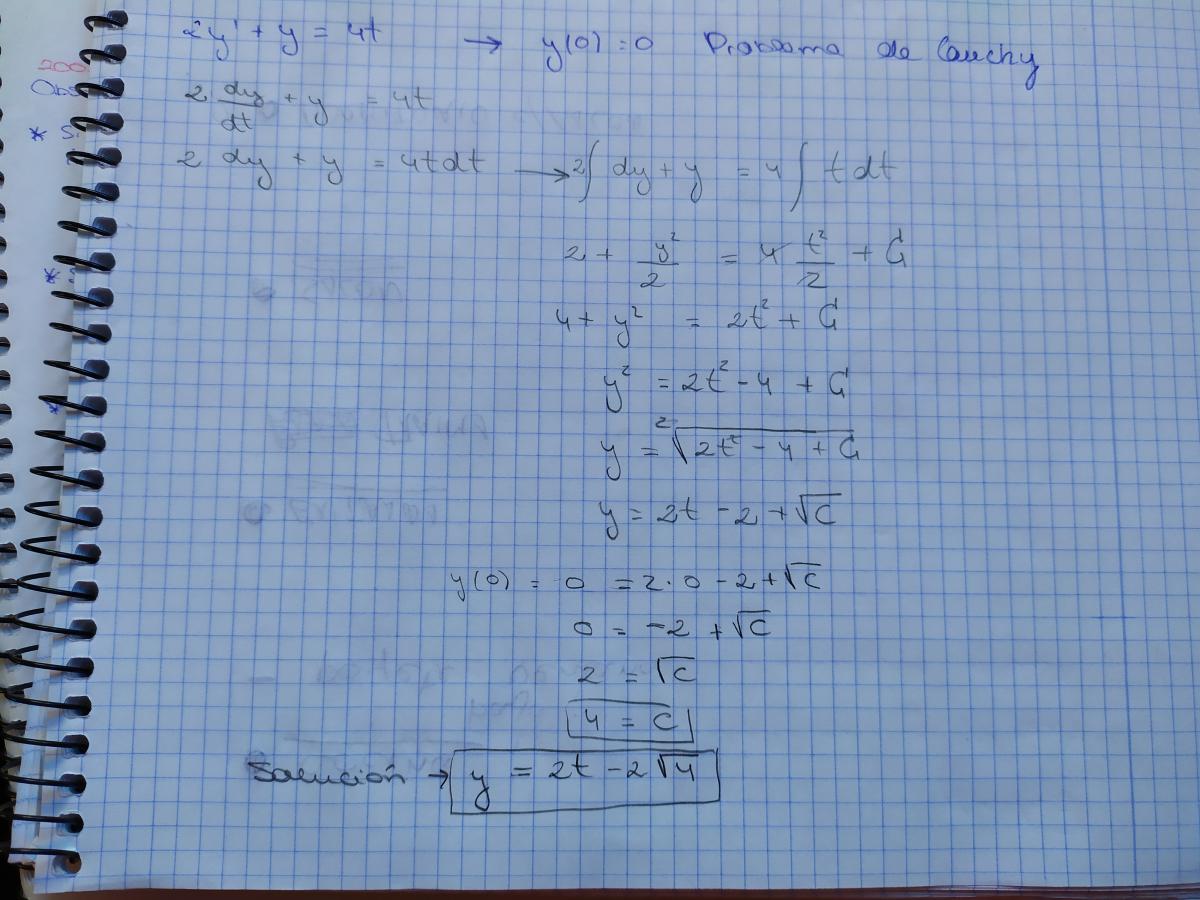 2y' + y = 4t → y(0) = 0 Problema de Cauchy
200
Obs
2 dy/dt + y = 4t
* Si
2 dy + y = 4t dt → 2∫ dy + y = 4 ∫ t dt
2 + y²/2 = 4 t²/2 + C
* S
4 + y² = 2t² + C
y² = 2t² - 4 + C
*
y = ²√(2t² - 4 + C)
y = 2t - 2 + √C
y(0) = 0 = 2·0 - 2 + √C
0 = -2 + √C
2 = √C
4 = C
Solución → y = 2t - 2√4